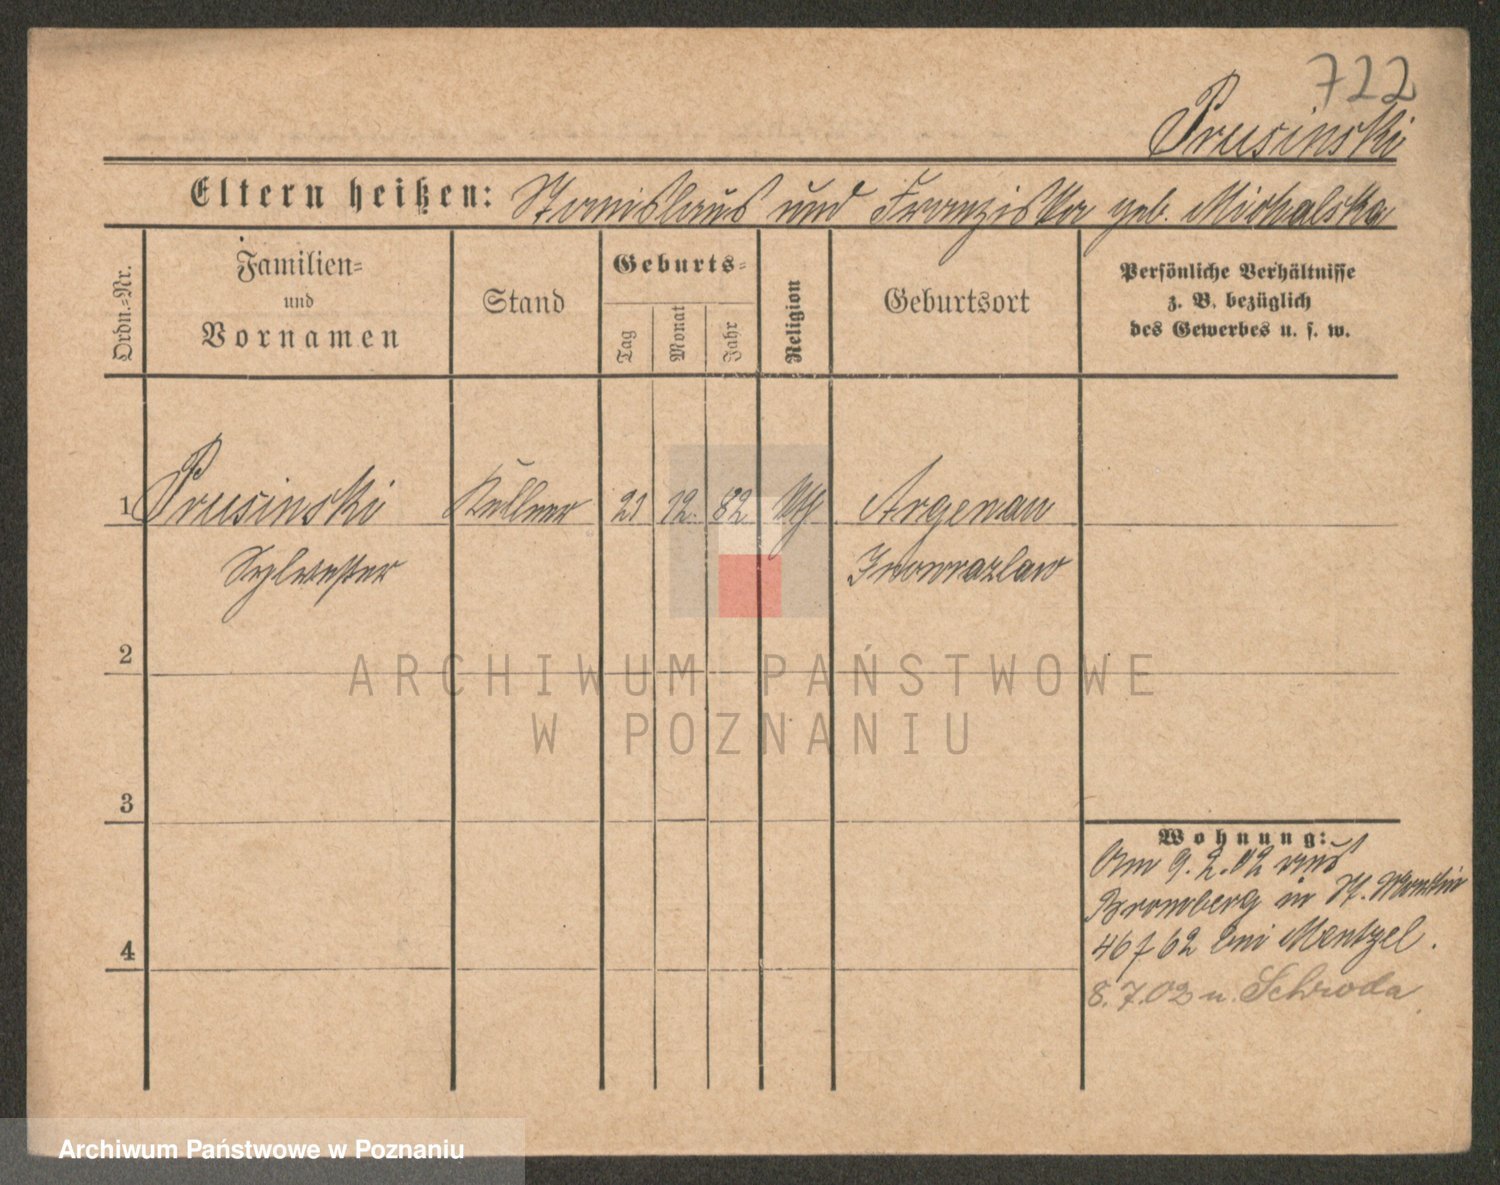 722
Prusinski
Eltern heißen: Stanislaus und Franziska geb. Michalska
Ordn.-Nr.
Familien-
und
Vornamen
Stand
Geburts-
Tag
Monat
Jahr
Religion
Geburtsort
Persönliche Verhältnisse
z. B. bezüglich
des Gewerbes u. s. w.
1 Prusinski Kellner 21 12. 82 Argenau
Sylvester Inowrazlaw
2
ARCHIWUM PAŃSTWOWE
W POZNANIU
3
Wohnung:
Am 9.2.02 aus
Bromberg in St. Martin
46/62 bei Mentzel.
4
8.7.02 n. Schroda.
Archiwum Państwowe w Poznaniu